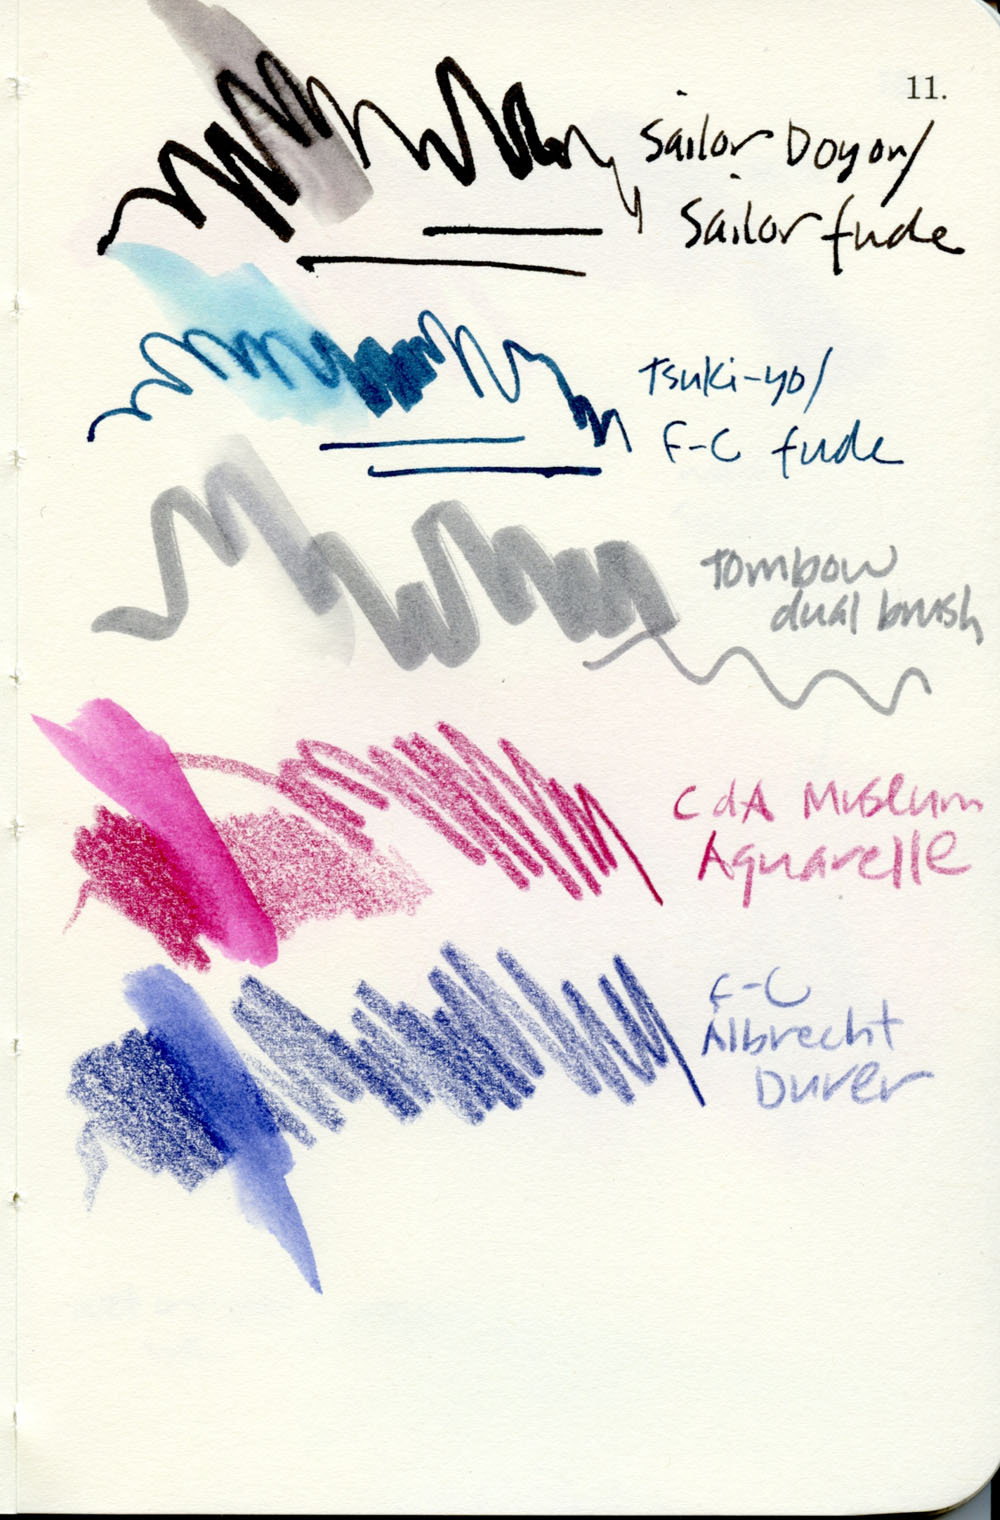 11.
Sailor Doyou/
Sailor fude
Tsuki-yo/
F-C fude
Tombow
dual brush
CdA Museum
Aquarelle
F-C
Albrecht
Durer